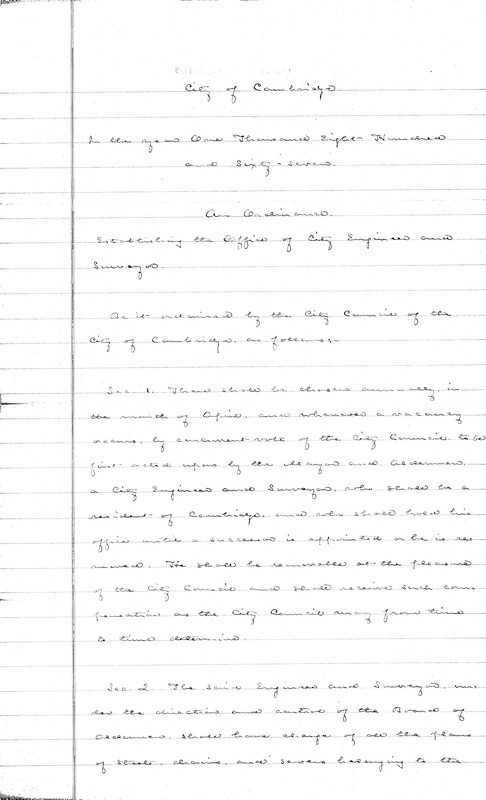 City of Cambridge.
In the year One Thousand Eight Hundred
and Sixty-seven.
An Ordinance.
Establishing the Office of City Engineer and
Surveyor.
Be it ordained by the City Council of the
City of Cambridge, as follows:-
Sec. 1. There shall be chosen annually, in
the month of April, and whenever a vacancy
occurs, by concurrent vote of the City Council, to be
first acted upon by the Mayor and Aldermen,
a City Engineer and Surveyor, who shall be a
resident of Cambridge, and who shall hold his
office until a successor is appointed or he is re-
moved. He shall be removable at the pleasure
of the City Council and shall receive such com-
pensation as the City Council may from time
to time determine.
Sec. 2. The said Engineer and Surveyor, un-
der the direction and control of the Board of
Aldermen, shall have charge of all the plans
of streets, drains, and sewers belonging to the